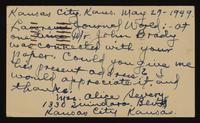 Kansas City, Kans. May 27-1949.
Lawrence Journal World:- at
one time Mr. John Brady
was connected with your
paper. Could you give me
his present address? I
would appreciate it, and
thanks!
Mrs. Alice
1330
Kansas City, Kansas.